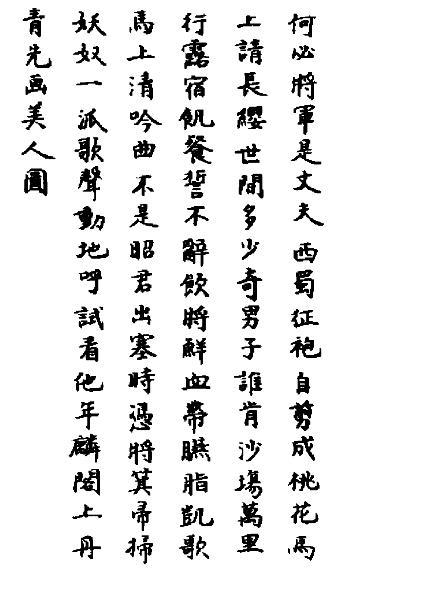 何必將軍是丈夫西蜀征袍自剪成桃花馬
上請長纓世間多少奇男子誰肯沙場萬里
行露宿飢餐誓不辭飲將鮮血帶臙脂凱歌
馬上清吟曲不是昭君出塞時憑將箕帚掃
妖奴一派歌聲動地呼試看他年麟閣上丹
青先画美人圖